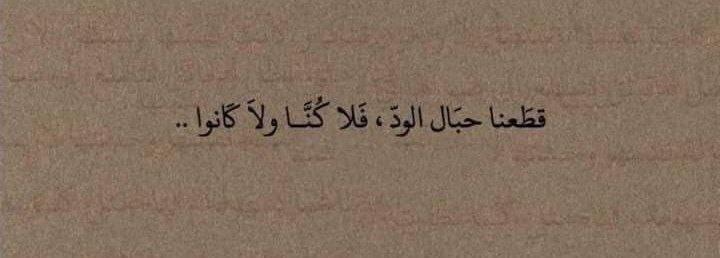 قطَعنا حبَال الودّ ، فَلا كُنَّـا ولاَ كَانوا ..